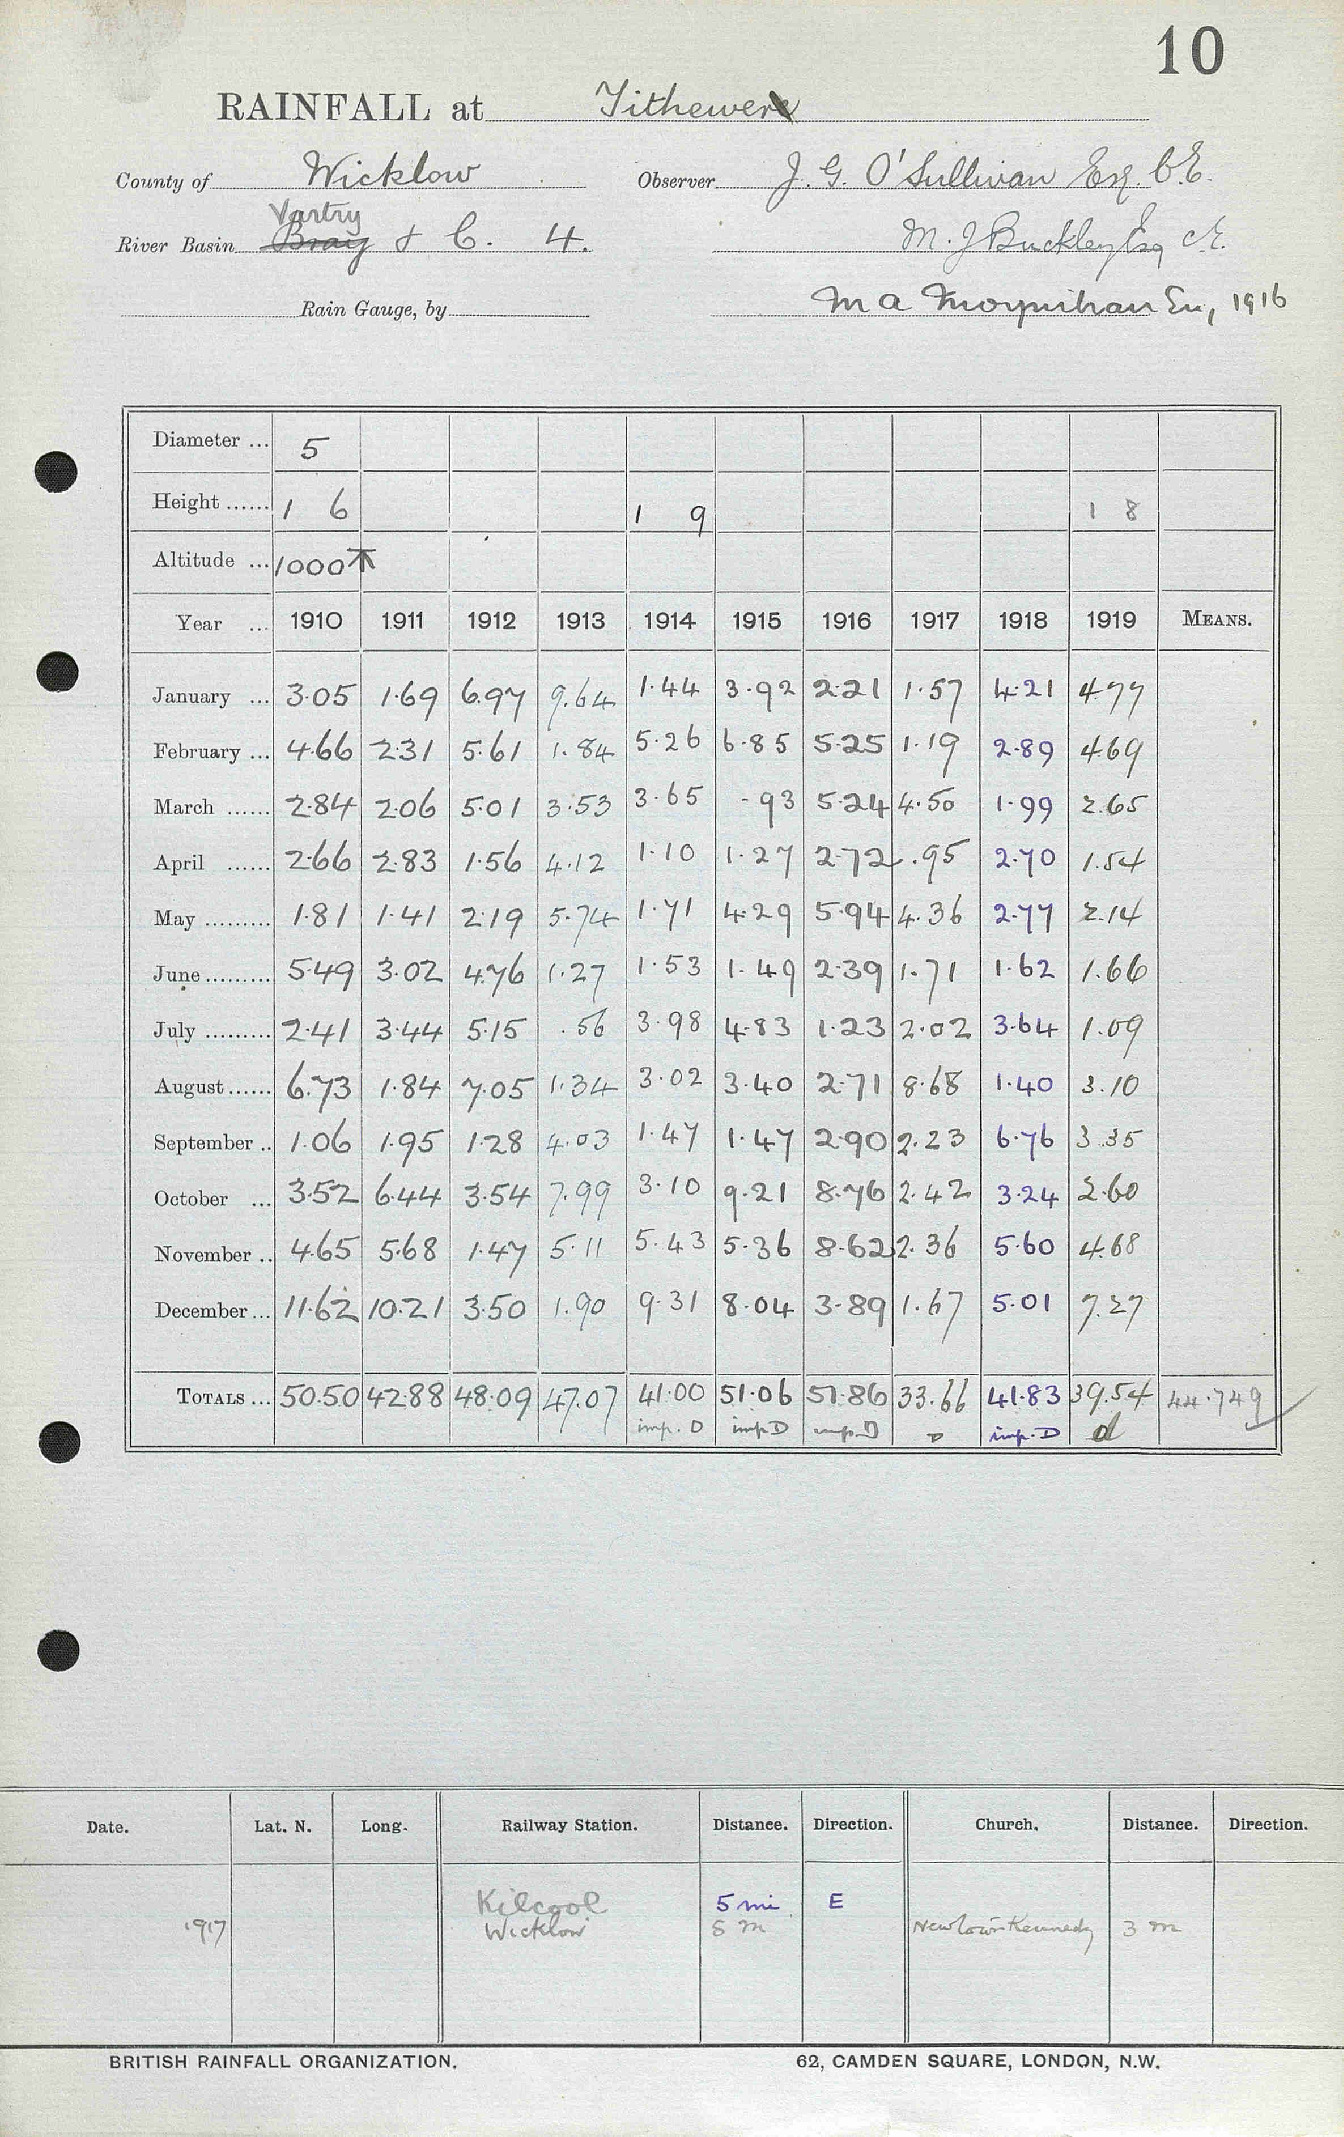 10
RAINFALL at Tithewer
County of Wicklow Observer J. G. O'Sullivan Esq. C.E.
Vartry
River Basin Bray & C. 4. M. J Buckley Esq CE.
Rain Gauge, by M A Moynihan 1916
Diameter ... 5
Height ...... 1 6 1 9 1 8
Altitude ... 1000
Year ... 1910 1911 1912 1913 1914 1915 1916 1917 1918 1919 MEANS.
January ... 3.05 1.69 6.97 9.64 1.44 3.92 2.21 1.57 4.21 4.77
February ... 4.66 2.31 5.61 1.84 5.26 6.85 5.25 1.19 2.89 4.69
March ...... 2.84 2.06 5.01 3.53 3.65 .93 5.24 4.50 1.99 2.65
April ...... 2.66 2.83 1.56 4.12 1.10 1.27 2.72 .95 2.70 1.54
May ......... 1.81 1.41 2.19 5.74 1.71 4.29 5.94 4.36 2.77 2.14
June ......... 5.49 3.02 4.76 1.27 1.53 1.49 2.39 1.71 1.62 1.66
July ......... 2.41 3.44 5.15 .56 3.98 4.83 1.23 2.02 3.64 1.09
August...... 6.73 1.84 7.05 1.34 3.02 3.40 2.71 8.68 1.40 3.10
September .. 1.06 1.95 1.28 4.03 1.47 1.47 2.90 2.23 6.76 3.35
October ... 3.52 6.44 3.54 7.99 3.10 9.21 8.76 2.42 3.24 2.60
November .. 4.65 5.68 1.47 5.11 5.43 5.36 8.62 2.36 5.60 4.68
December ... 11.62 10.21 3.50 1.90 9.31 8.04 3.89 1.67 5.01 7.27
TOTALS ... 50.50 42.88 48.09 47.07 41.00 51.06 51.86 33.66 41.83 39.54 44.749
imp. D imp. D imp. D D imp. D d
Date. Lat. N. Long. Railway Station. Distance. Direction. Church. Distance. Direction.
Kilcool 5 mi E
1917 Wicklow 8 m Newtown Kennedy 3 m
BRITISH RAINFALL ORGANIZATION. 62, CAMDEN SQUARE, LONDON, N.W.